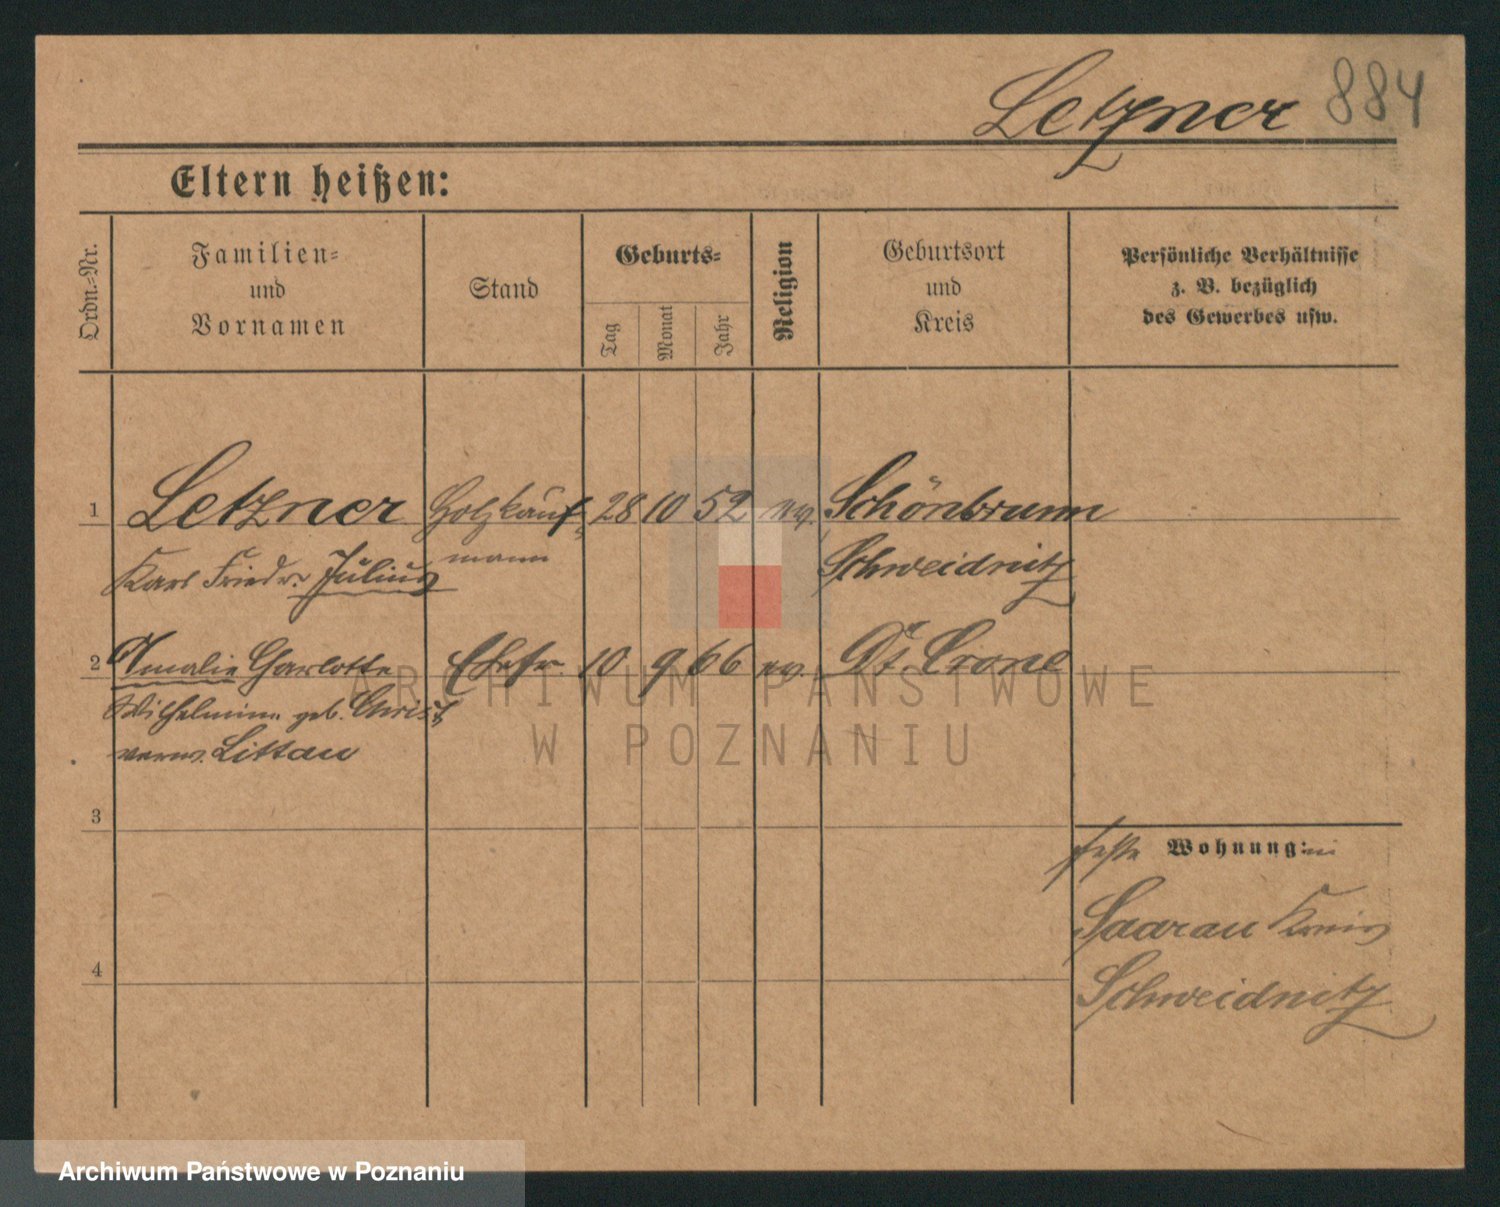 Letzner 884
Eltern heißen:
Ordn.-Nr.
Familien-
und
Vornamen
Stand
Geburts-
Tag
Monat
Jahr
Religion
Geburtsort
und
Kreis
Persönliche Verhältnisse
z. B. bezüglich
des Gewerbes usw.
1 Letzner Holzkauf- 28 10 52 ev. Schönbrunn
Karl Friedr. Julius mann Schweidnitz
2 Amalie Charlotte Ehefr. 10 9 66 ev. Dt. Crone
Wilhelmine geb. Christ
verw. Littau
3
feste Wohnung: in
Saarau Kreis
4
Schweidnitz
ARCHIWUM PAŃSTWOWE
W POZNANIU
Archiwum Państwowe w Poznaniu